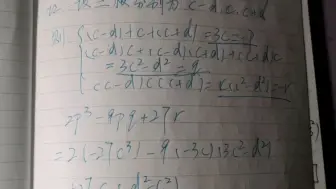 设三根分别为 c-d, c, c+d
则 (c-d)+c+(c+d)=3c=-p
(c-d)c+(c-d)(c+d)+(c+d)c
=3c²-d²=q
(c-d)c(c+d)=c(c²-d²)=-r
2p³-9pq+27r
=2(-27c³)-9(-3c)(3c²-d²)